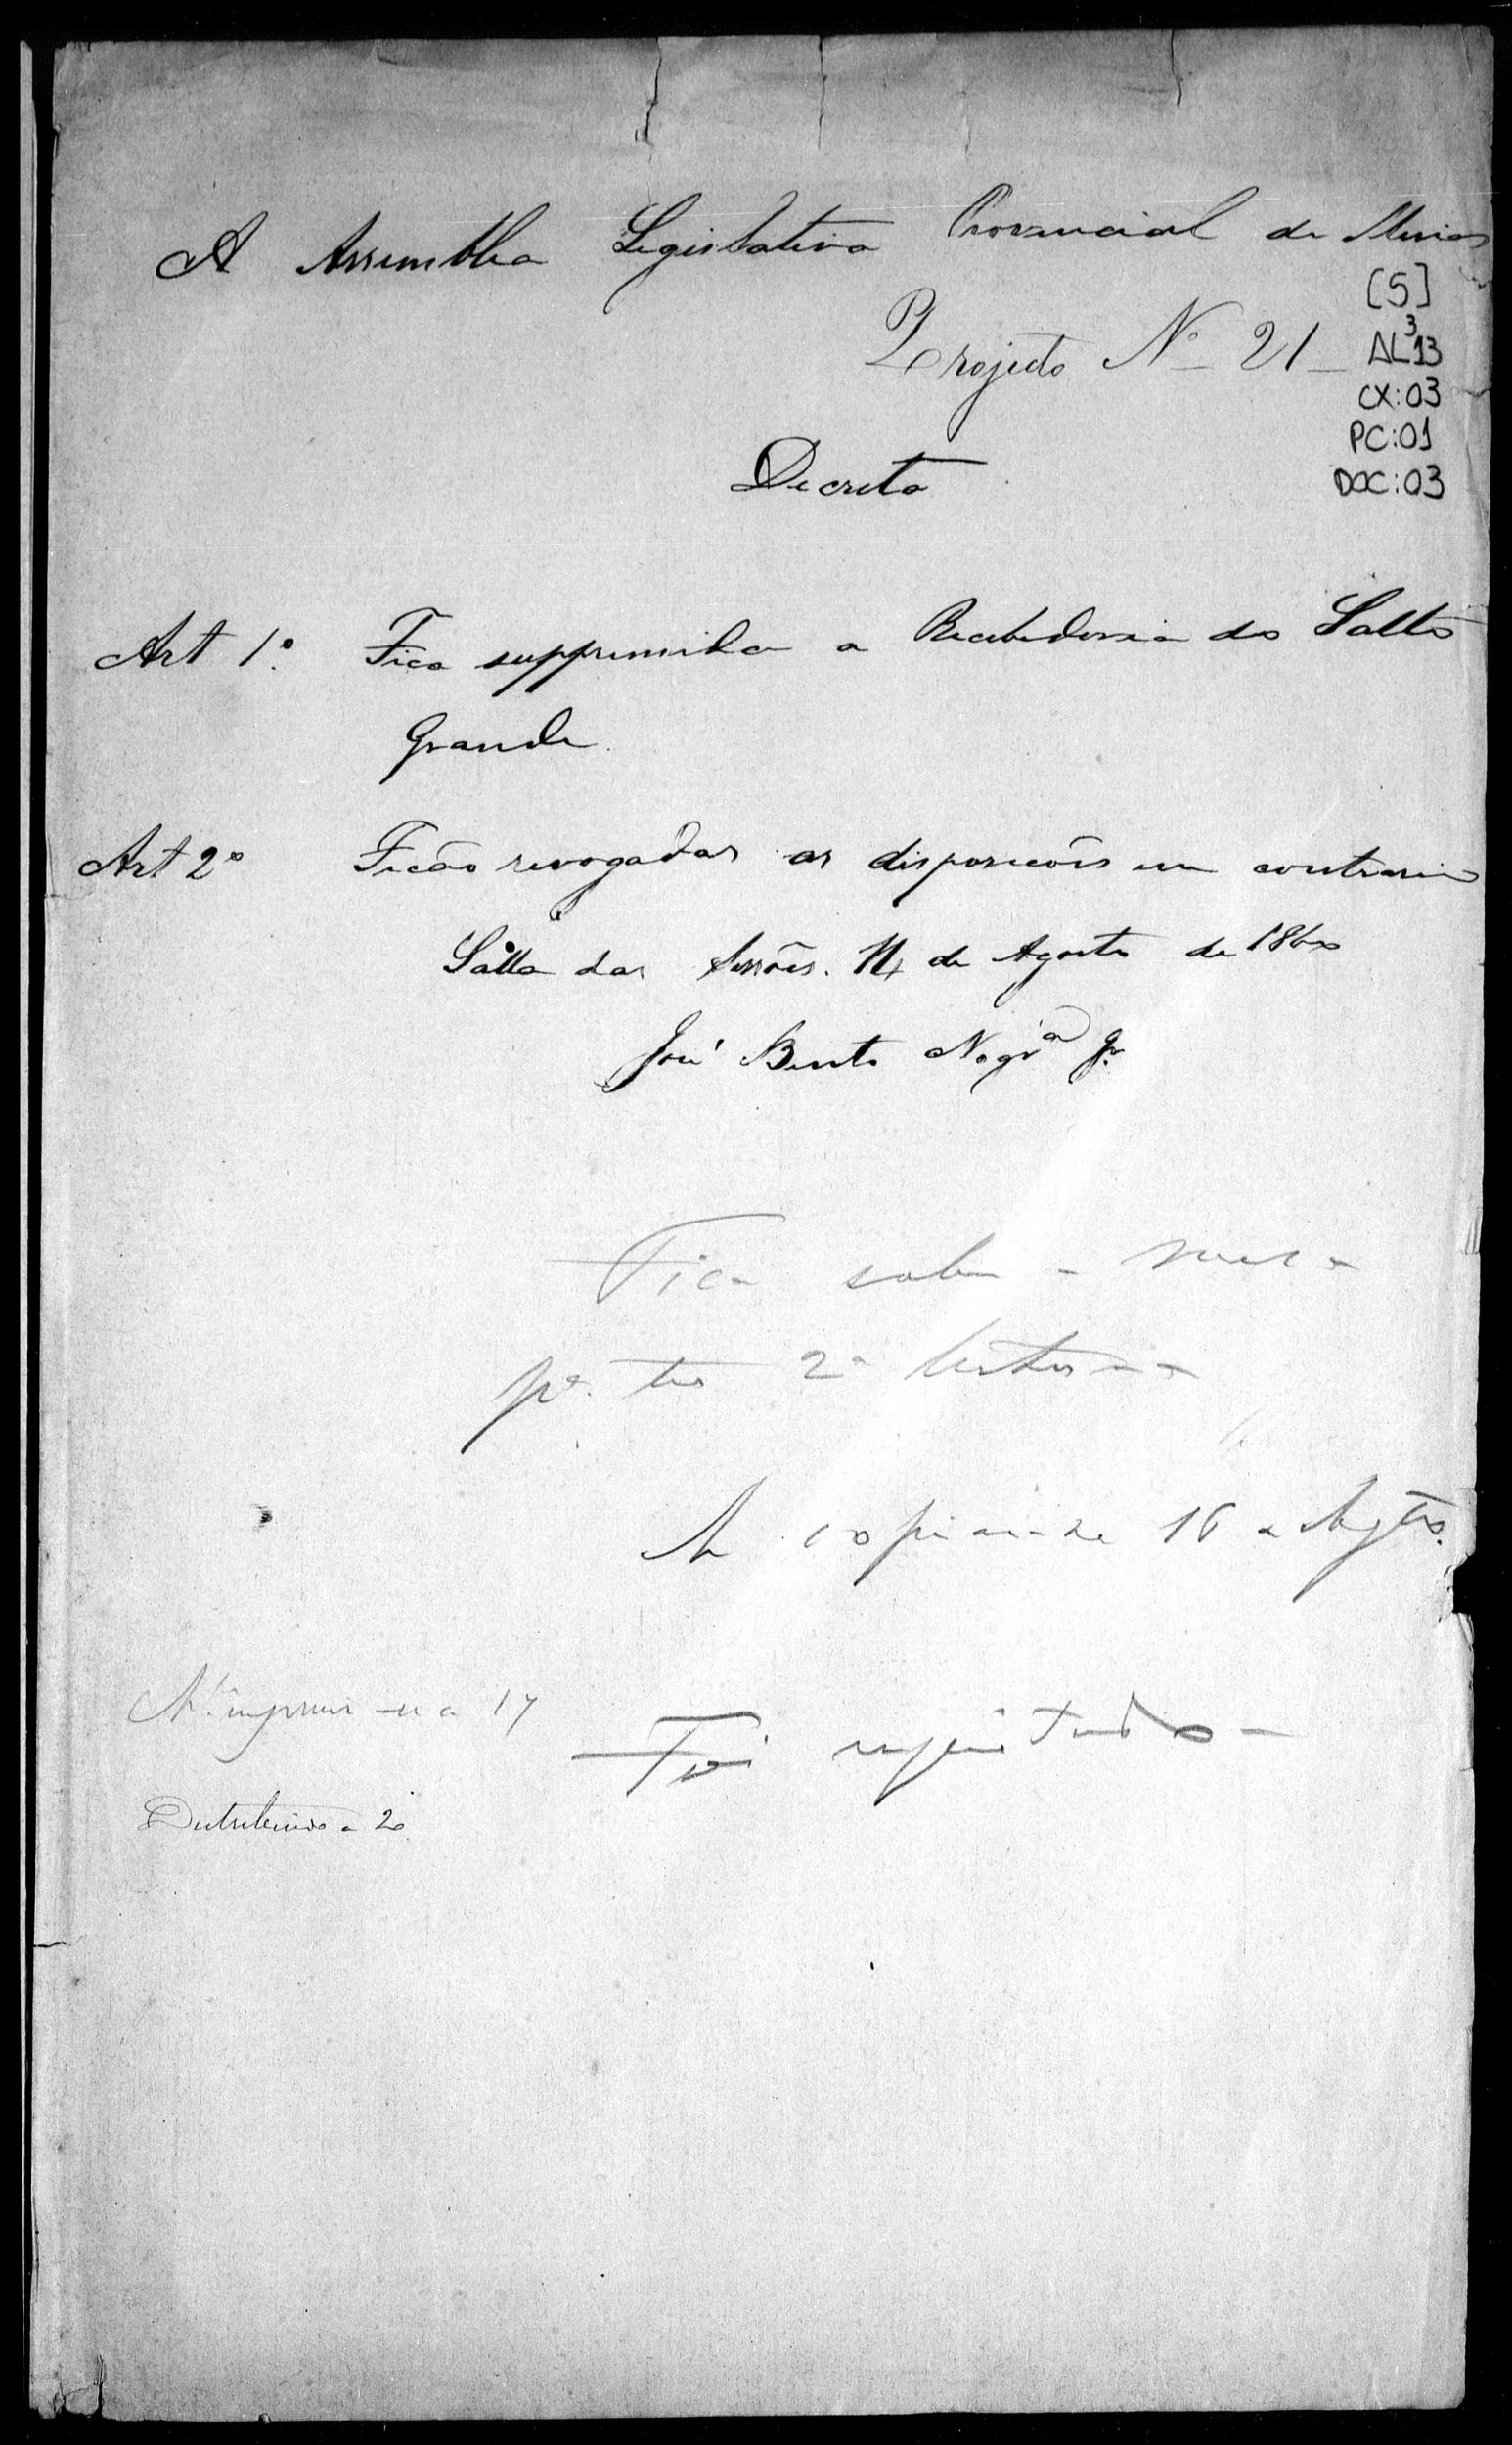 A Assemblea Legislativa Provincial de Minas
[5]
Projecto Nº 21
AL³13
CX:03
PC:01
DOC:03
Decreta
Art 1º. Fica supprimida a Recebedoria do Salto
Grande.
Art 2º Ficão revogadas as disposicões em contrario
Salla das Sessões. 14 de Agosto de 1860
José Bento Nogrª Jr
Fica sobre a mesa
pª. ter 2ª leitura
A copiar-se 16 a Agto.
A imprimir-se a 17
Foi regeitado
Distribuido a 20